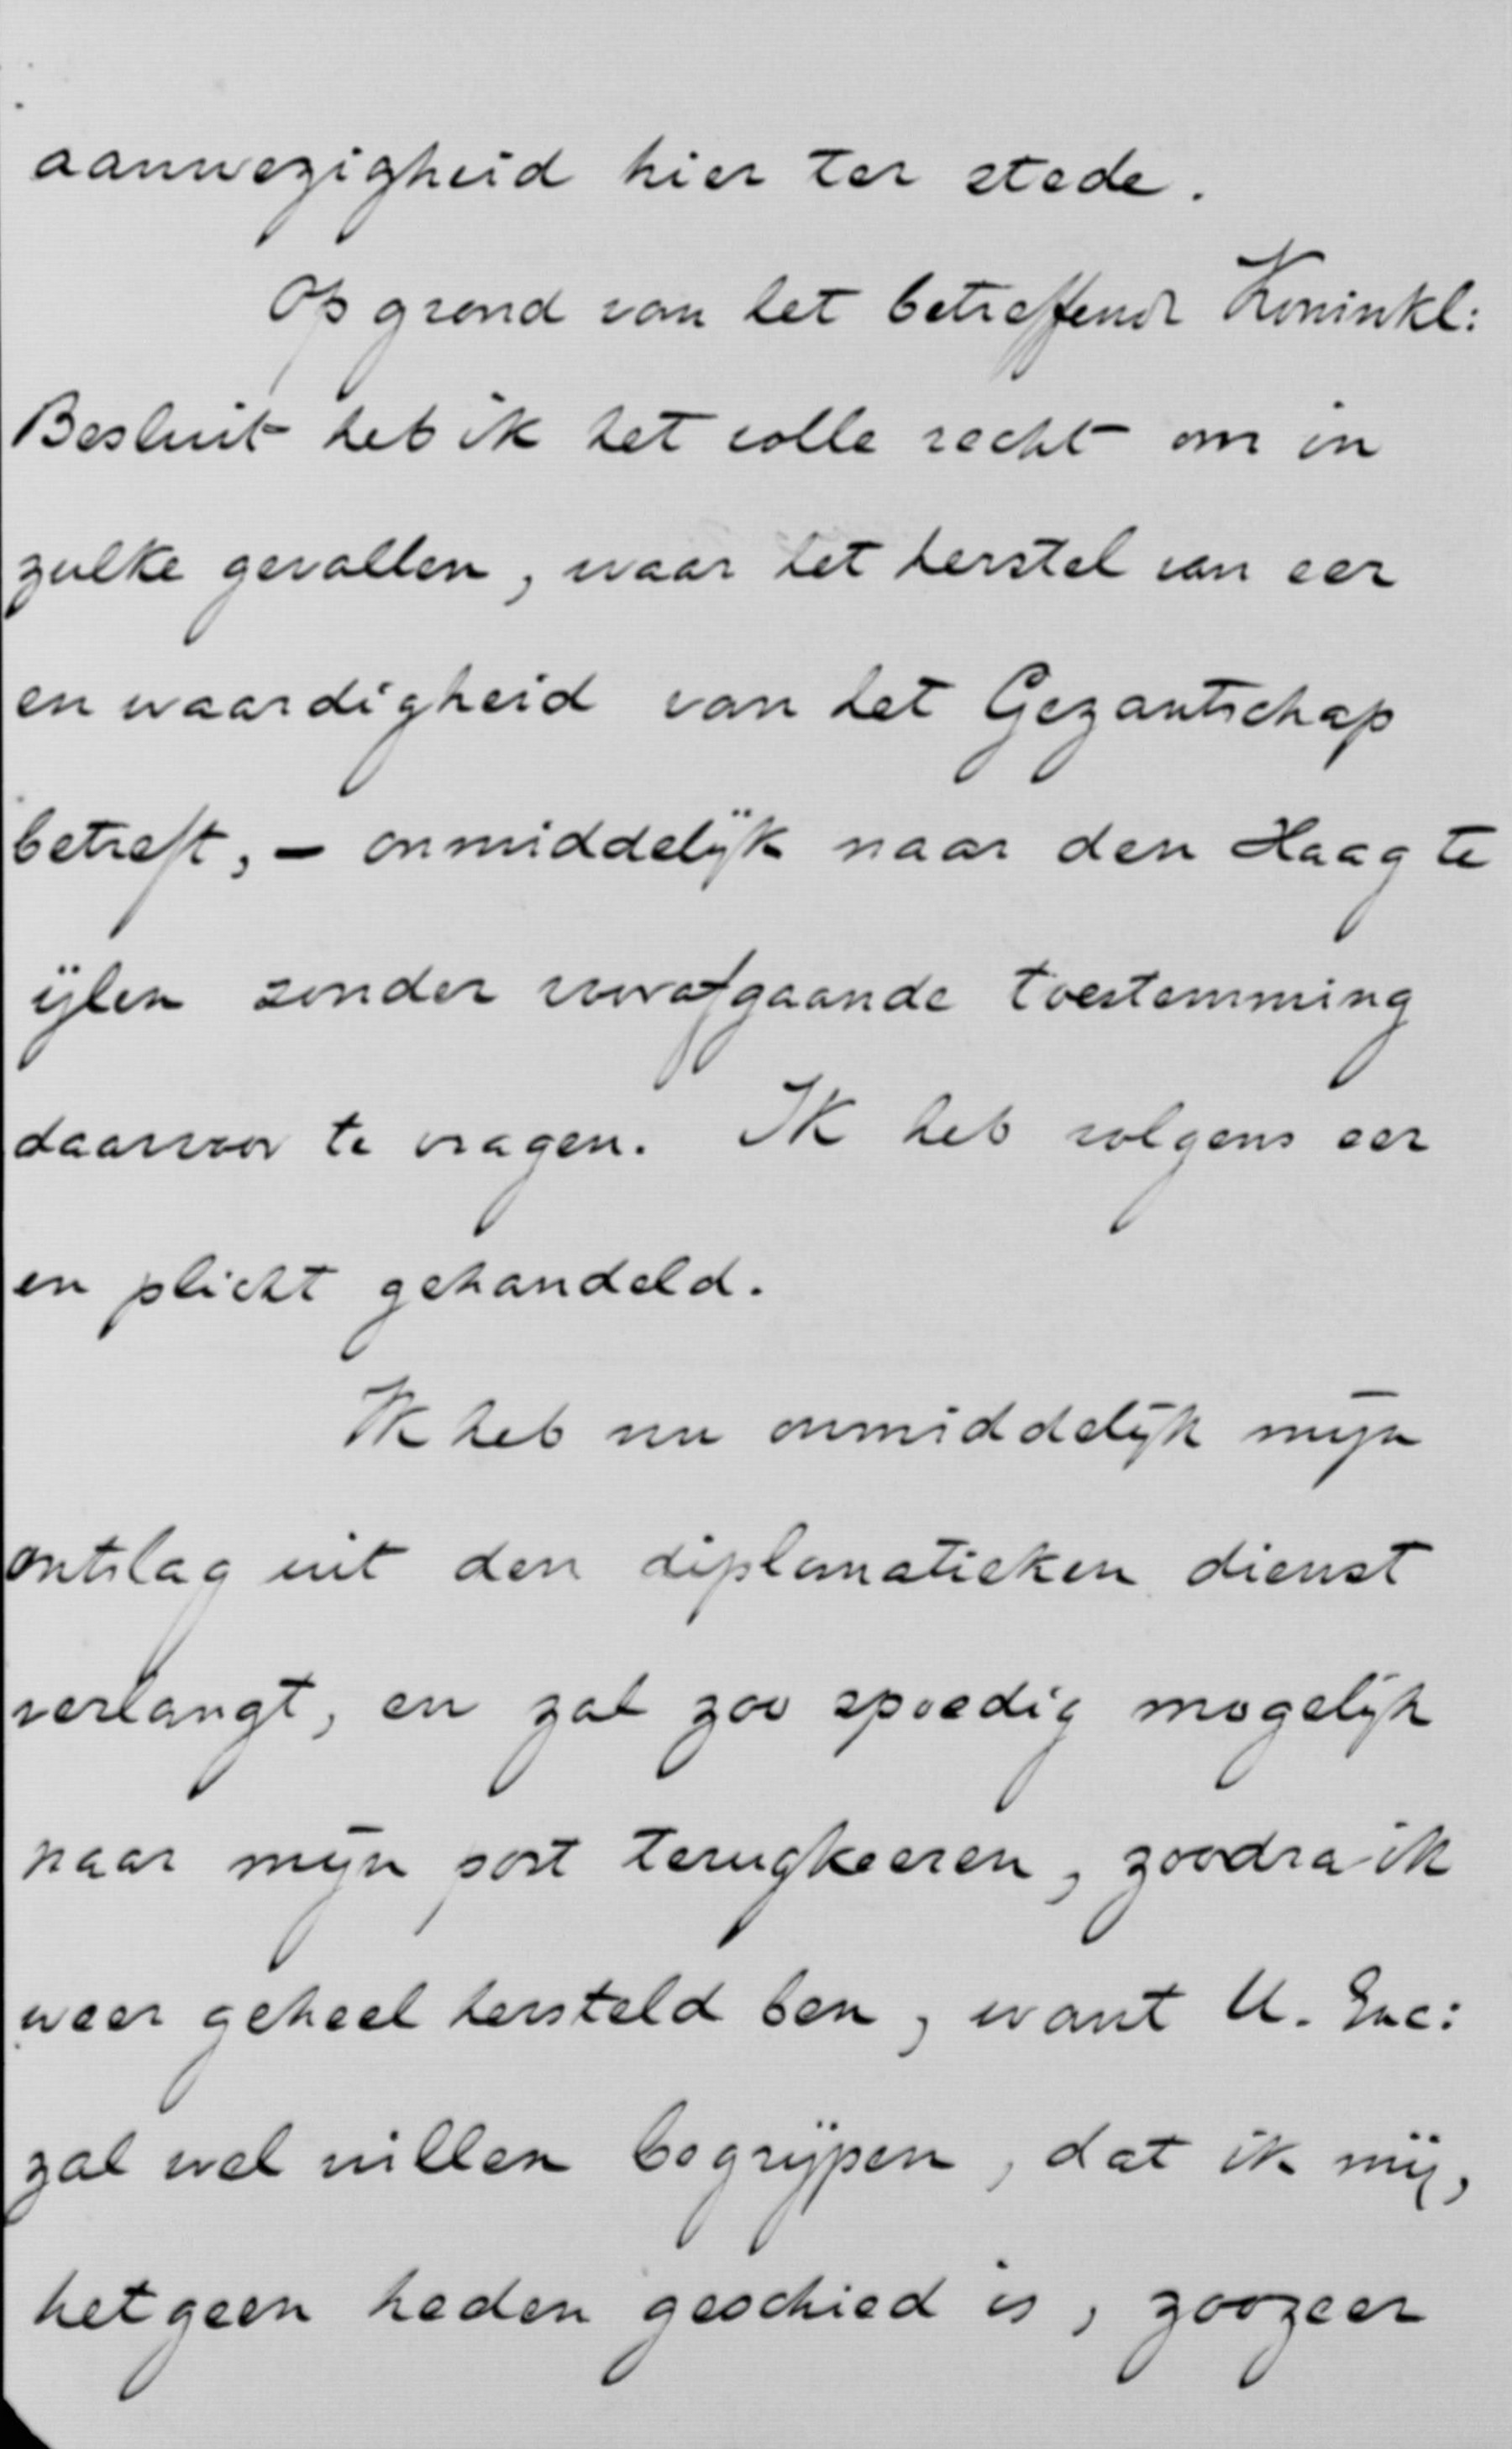 aanwezigheid hier ter stede.
Op grond van het betreffend Koninkl:
Besluit heb ik het volle recht om in
zulke gevallen, waar het herstel van eer
en waardigheid van het Gezantschap
betreft, - onmiddelijk naar den Haag te
ijlen zonder voorafgaande toestemming
daarvoor te vragen. Ik heb volgens eer
en plicht gehandeld.
Ik heb nu onmiddelijk mijn
ontslag uit den diplomatieken dienst
verlangt, en zal zoo spoedig mogelijk
naar mijn post terugkeeren, zoodra ik
weer geheel hersteld ben, want U. Exc:
zal wel willen begrijpen, dat ik mij,
hetgeen heden geschied is, zoozeer